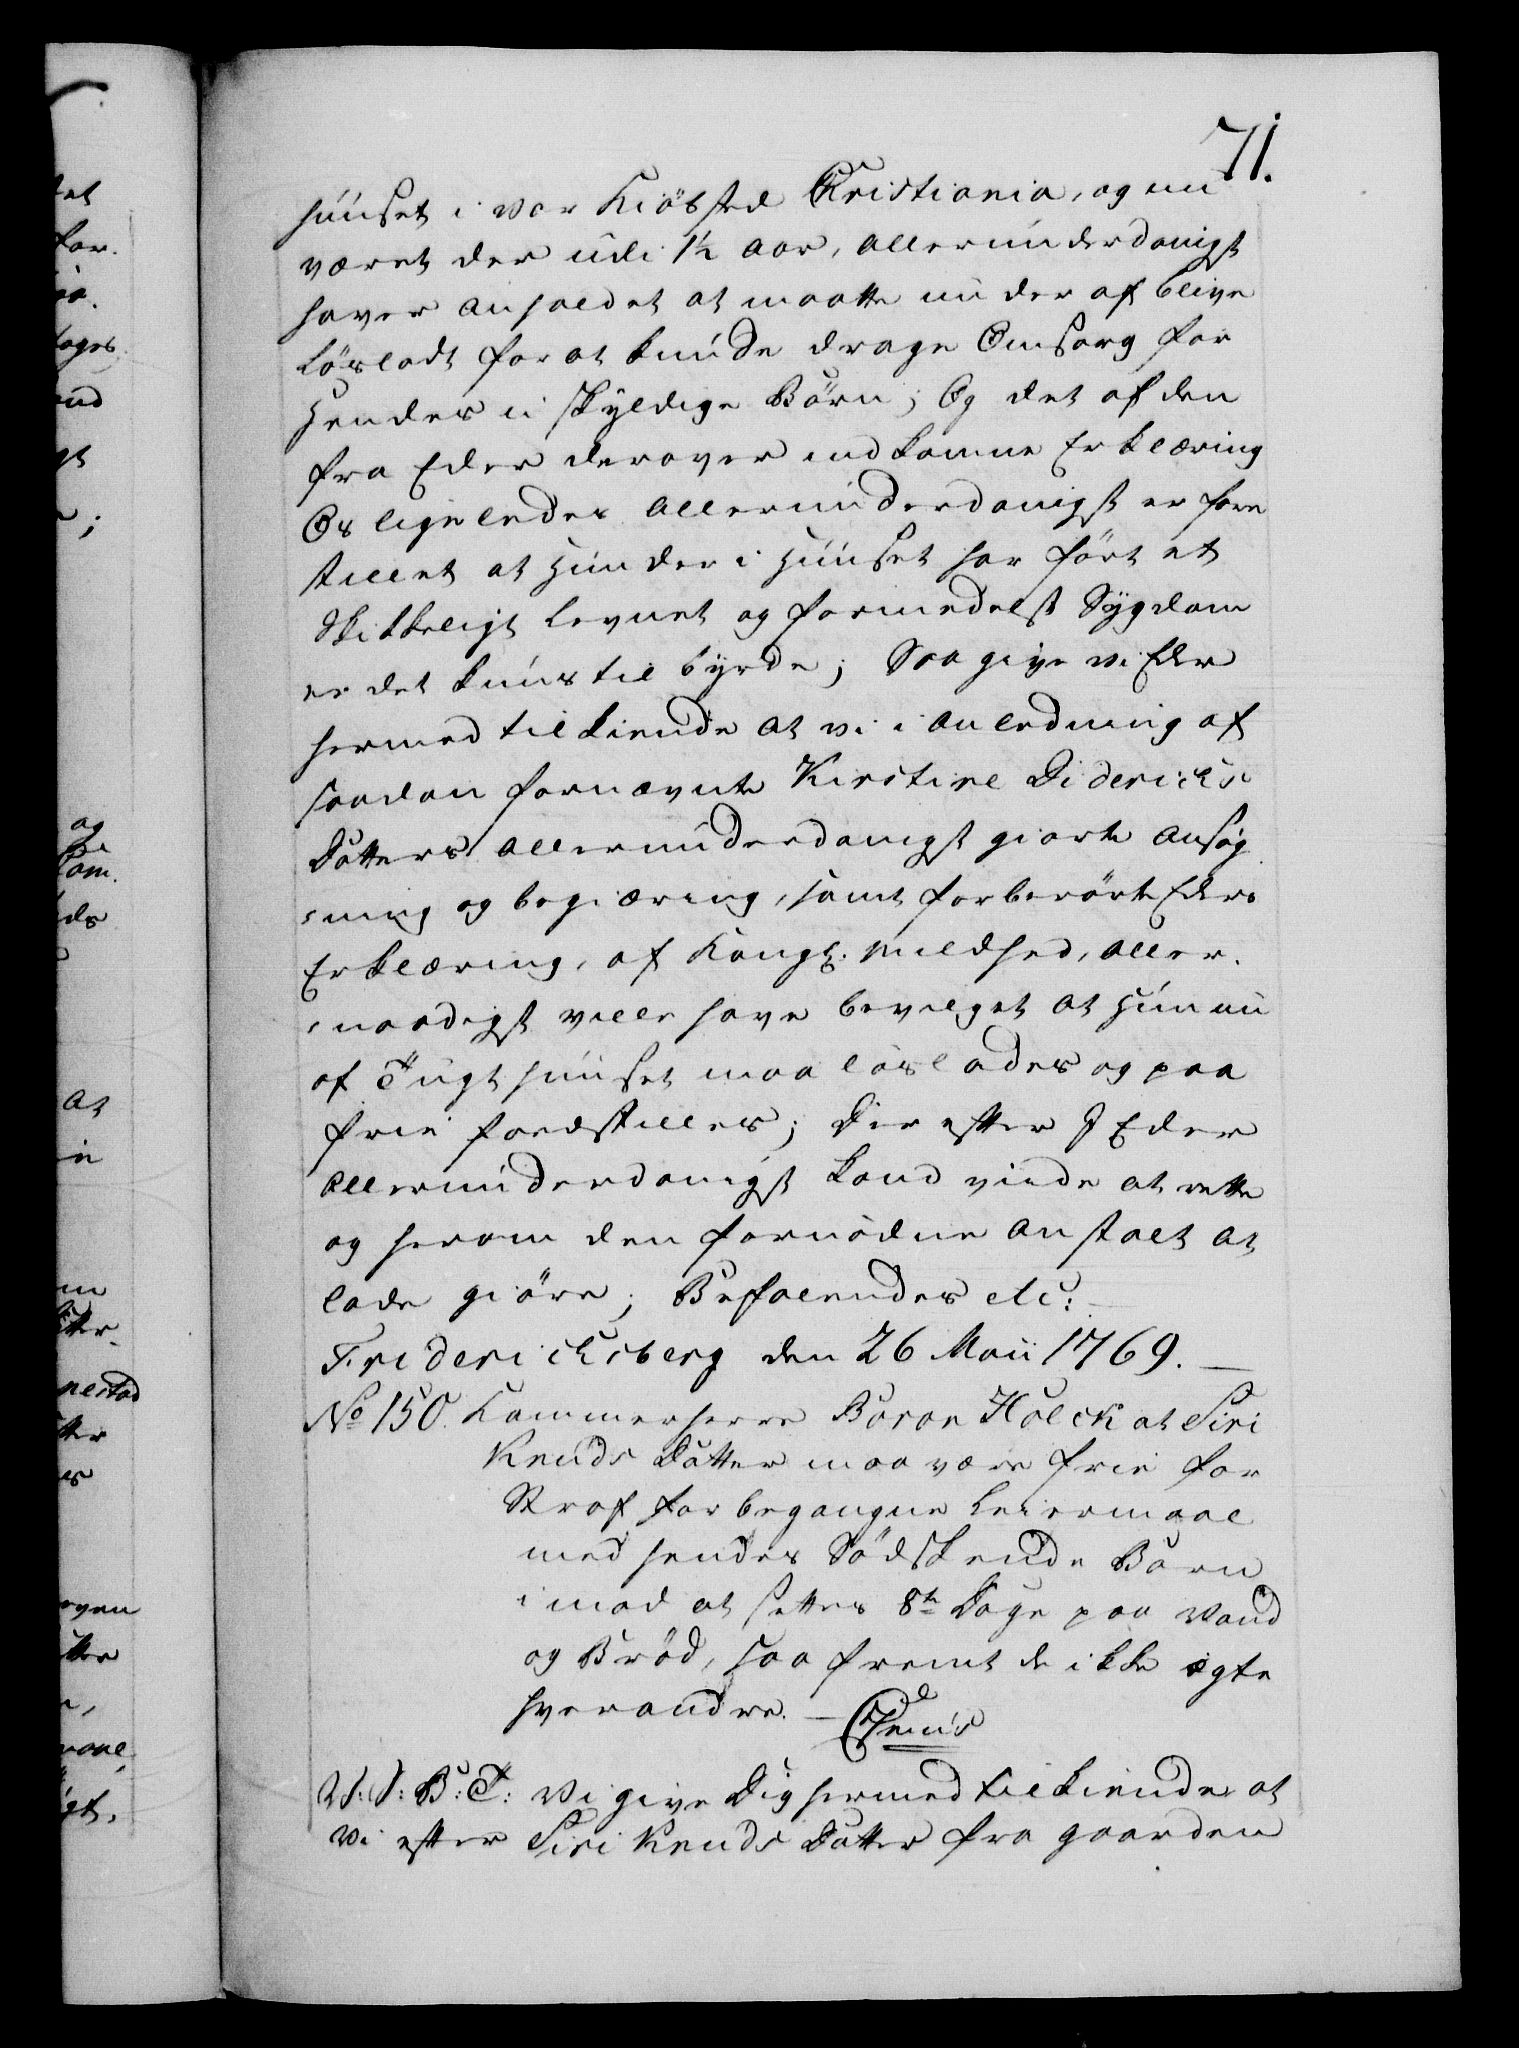 71.
huuset i vor Kiöbsted Christiania, og nu
været der udi 1½ Aar, allerunderdanigst
haver anholdet at maatte nu der af blive
lösladt for at kunde drage Omsorg for
Hendes u skyldige Börn; Og det af den
fra Eder derover ind komne Erklæring
Os ligeledes allerunderdanigst er fore
stillet at Hun der i Huuset har fört et
Skikkeligt Levnet og formedelst Sygdom
er det kuns til byrde; Saa give vi Eder
hermed tilkiende at vi i anledning af
saadan fornævnte Kirstine Diderichs
Datters allerunderdanigst giorte Ansög
=ning og begiæring, samt forberörte Eders
Erklæring, af Kongl. Mildhed, aller.
=naadigst ville have bevilget at Hun nu
af Tugthuuset maa löslades og paa
frie foedstilles; Der efter I Eder
allerunderdanigst kand vide at rette
og herom den fornödne Anstalt at
lade giöre; Befalendes etc:
Friderichsberg den 26 Maii 1769.
No 150. Kammerherre Baron Holck at Siri
Knuds Datter maa være frie for
Straf for begangne Leiermaal
med hendes Södskende Barn
imod at settes 8te Dage paa Vand
og Bröd, saa fremt de ikke ægte
hverandre. —
V: S: B: T: Vi give Dig hermed tilkiende at
vi efter Siri Knuds Datter fra gaarden
og
at